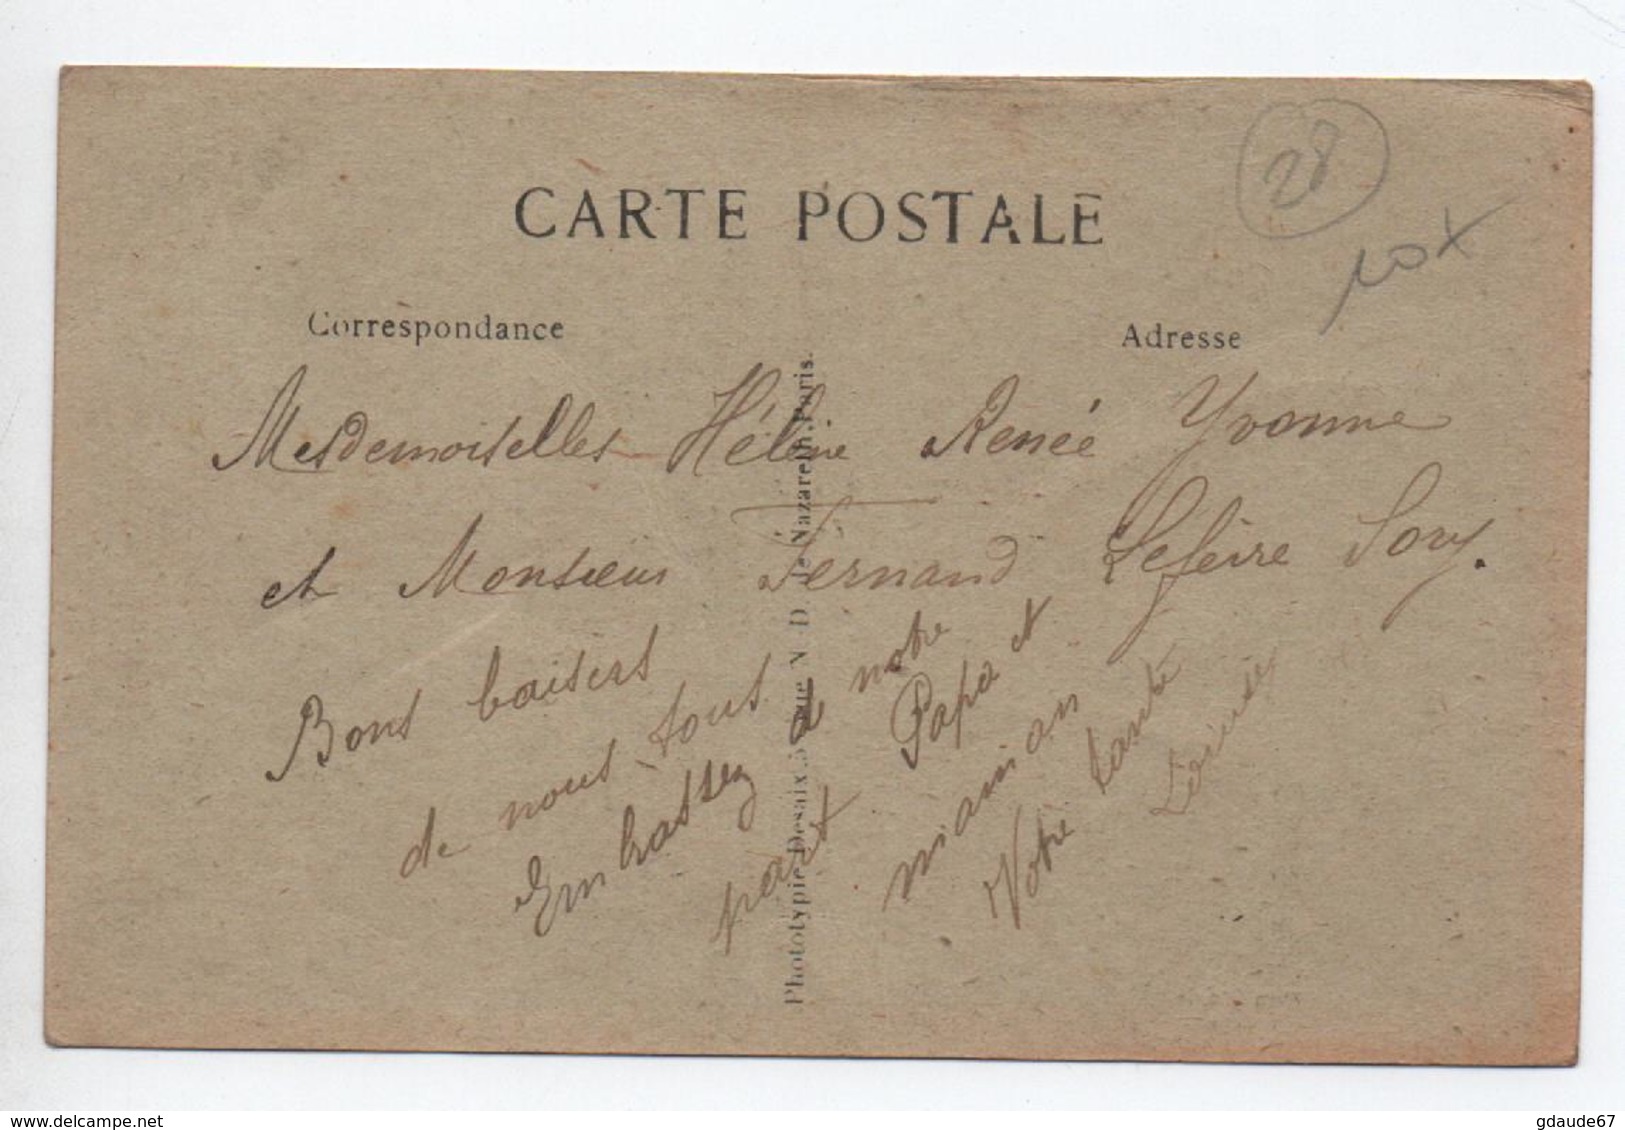 28
10x
CARTE POSTALE
Correspondance
Adresse
Mesdemoiselles Hélène Renée Yvonne
et Monsieur Fernand Lefeire Sory.
Bons baisers
de nous tous
Embrassez de notre
part Papa et
maman
Votre tante
Louise
Phototypie Desaix, 5 rue N-D. de Nazareth, Paris.
gdaude67